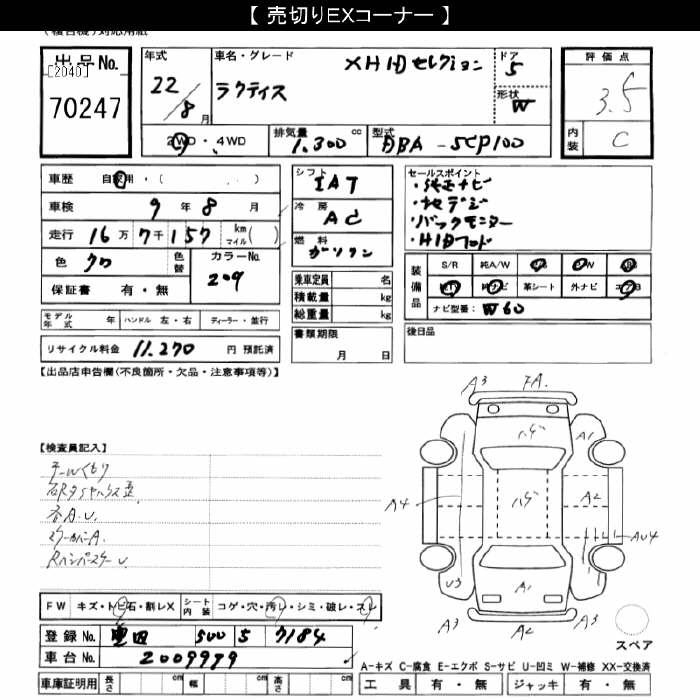 【 売切りEXコーナー 】
対応用紙
出品No.
[2040]
70247
年式
22/8月
車名・グレード
X HIDセレクション
ラクティス
ドア
5
形状
W
評価点
3.5
内装
C
2WD・4WD
排気量
1,300 cc
型式
DBA - SCP100
車歴 自家用・( )
車検 9 年 8 月
走行 16万7千157 km マイル( )
色 クロ
色替
カラーNo.
209
保証書 有・無
シフト
IAT
冷房
AC
燃料
ガソリン
乗車定員 名
積載量 kg
総重量 kg
セールスポイント
・純正ナビ
・地デジ
・バックモニター
・HIDフロント
装備品
S/R 純A/W P/S P/W
純TV 純ナビ 革シート 外ナビ
ナビ型番: W60
モデル年式 年 ハンドル 左・右 ディーラー・並行
リサイクル料金 11,270 円 預託済
書類期限
月 日
後日品
【出品店申告欄(不良個所・欠品・注意事項等)】
【検査員記入】
各A.U.
RバンパーステーU
FW キズ・トビ石・割レX
シート内装 コゲ・穴・汚レ・シミ・破レ・スレ
登録No. 豊田 500 5 7184
車台No. 2009999
車庫証明用 長さ cm 幅 cm 高さ cm
A3
FA.
ハゲ
A1
ハゲ
A2
A4
AU4
U3
A1
A3
A2
A3
スペア
A−キズ C−腐食 E−エクボ S−サビ U−凹ミ W−補修 XX−交換済
工具 有・無 ジャッキ 有・無